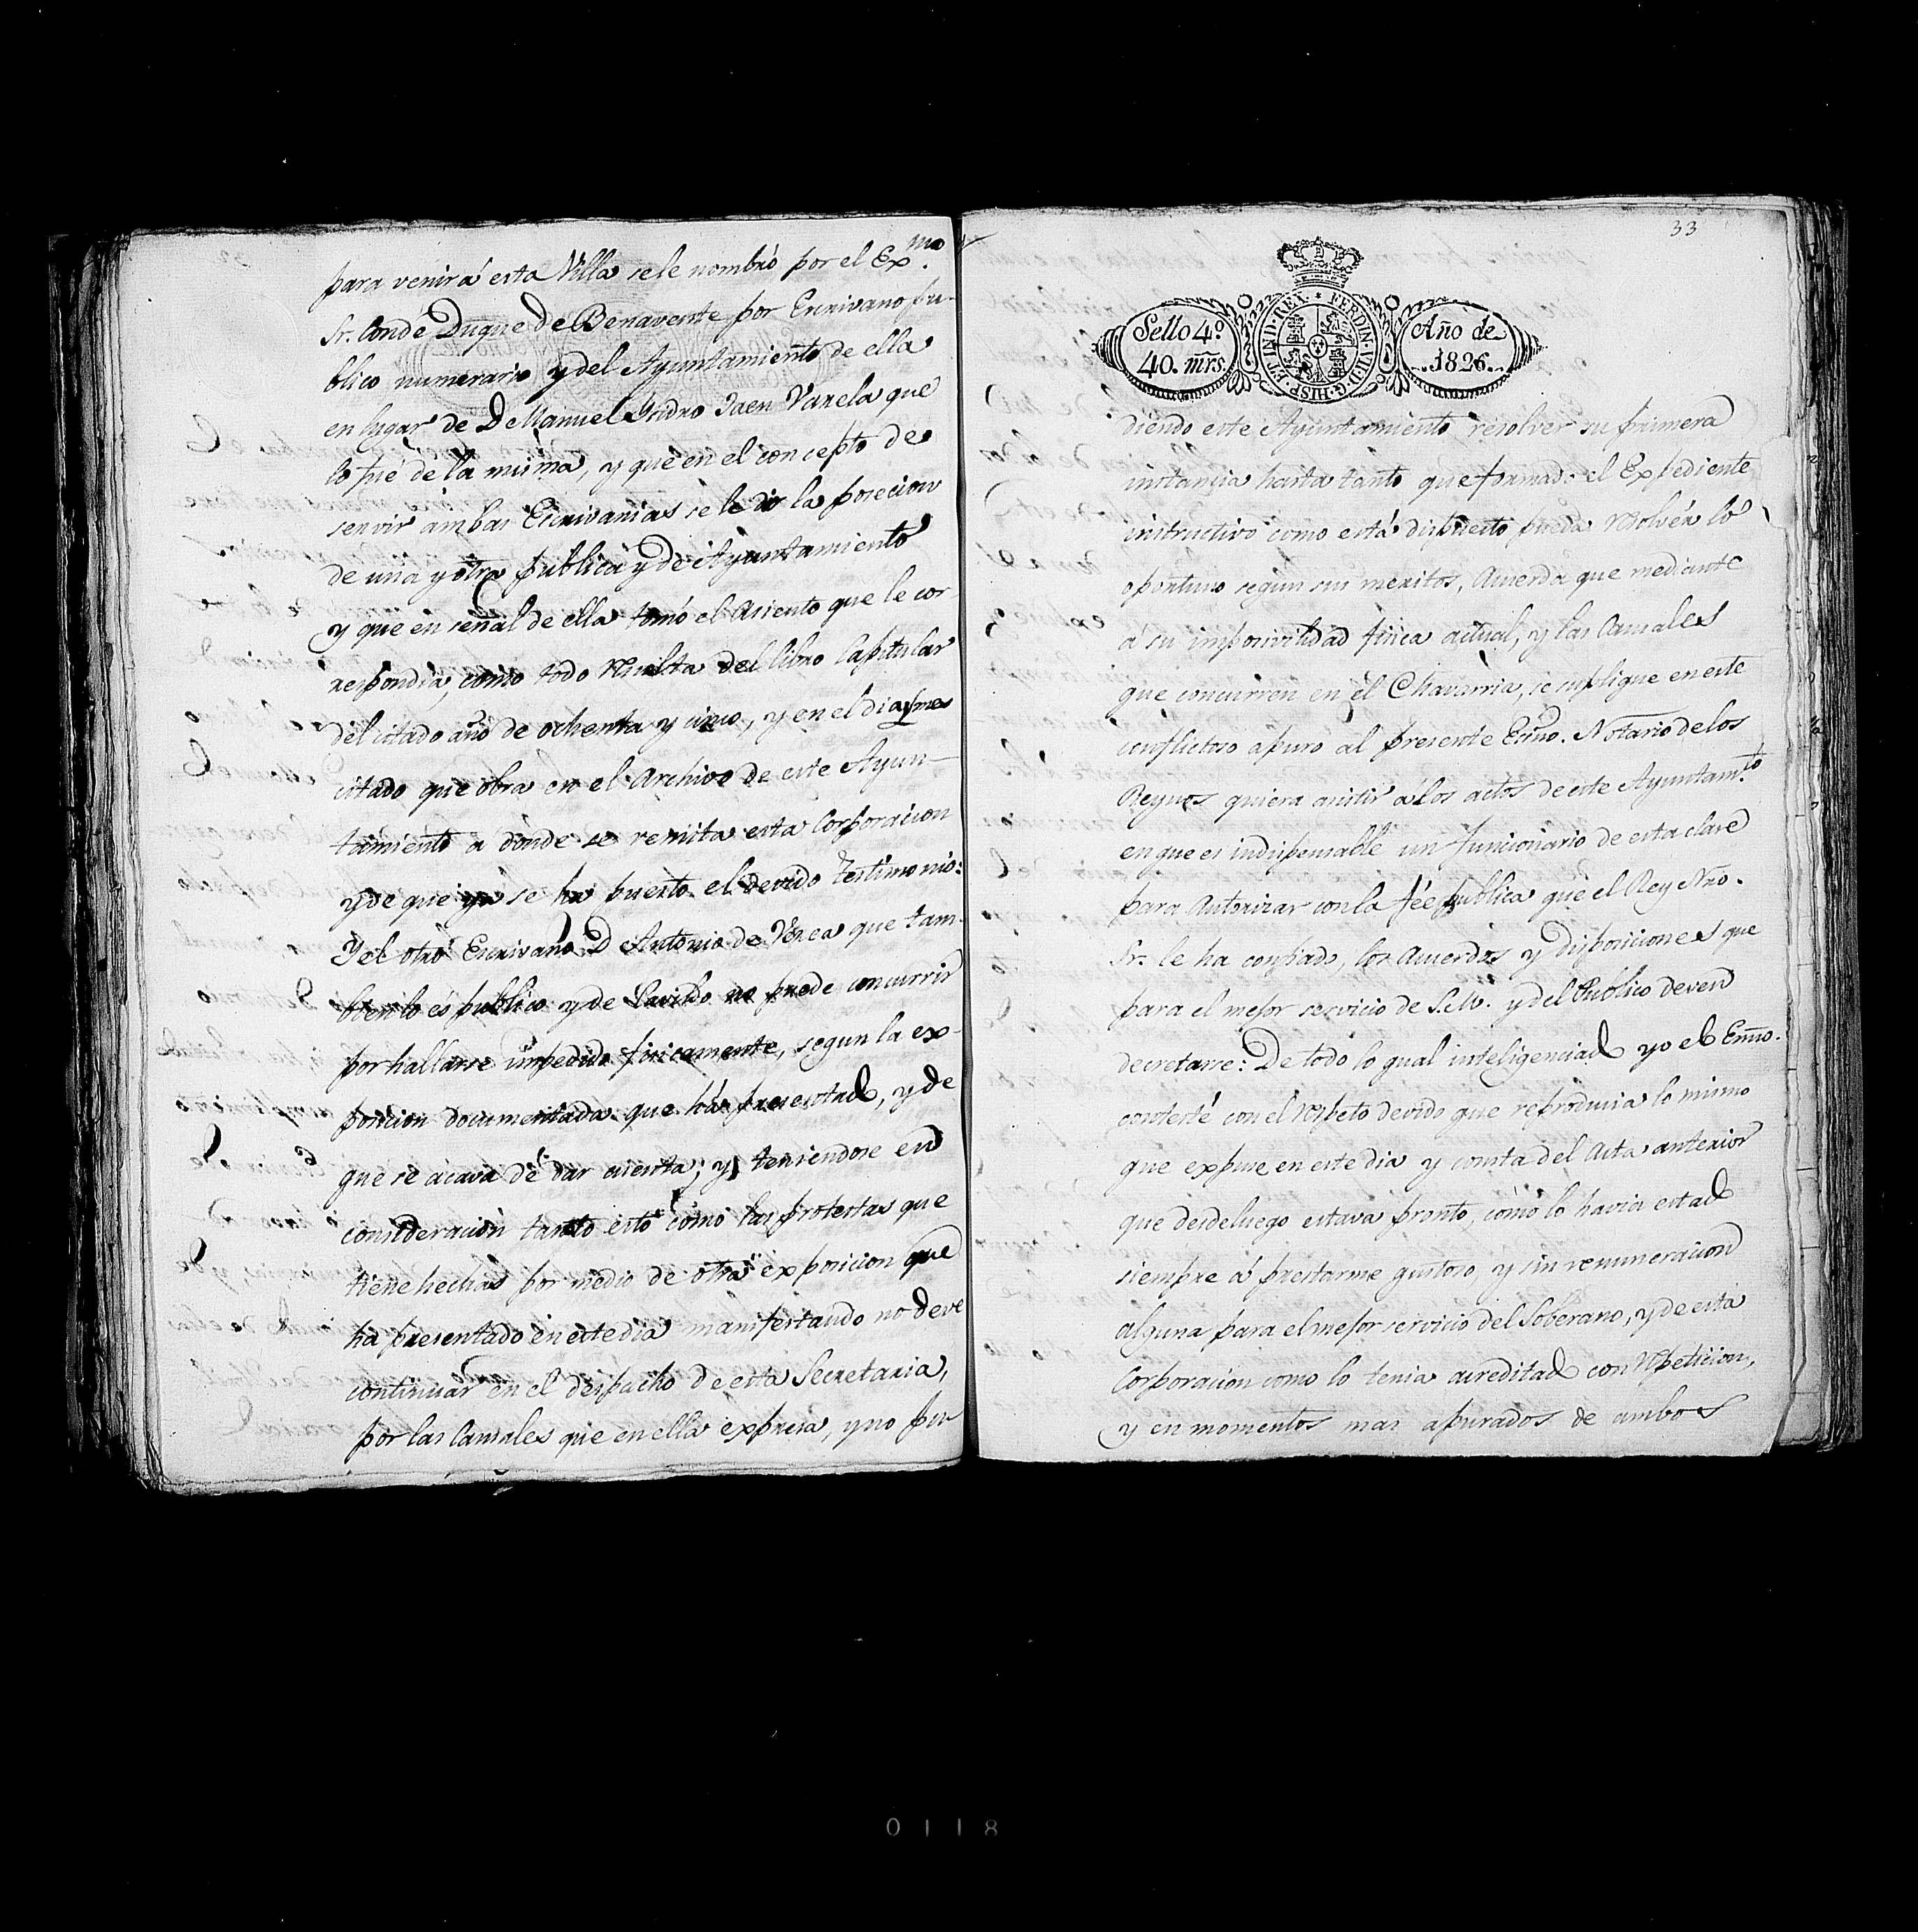 para venir á esta Villa se le nombró por el Exmo.
Sr. Conde Duque de Benavente por Escrivano pu-
blico numerario y del Ayuntamiento de ella
en lugar de Dn Manuel Ysidro Jaen Varela que
lo fue de la misma, y que en el concepto de
servir ambas Escrivanias se le dio la posecion
de una y otra publica y de Ayuntamiento
y que en señal de ella tomó el Asiento que le cor-
respondia, como todo resulta del libro Capitular
del citado año de ochenta y cinco, y en el dia y mes
citado que obra en el Archivo de este Ayun-
tamiento a donde se remita esta Corporacion
y de que ya se ha puesto el devido testimonio:
Y el otro Escrivano Dn Antonio de Verea que tam-
bien lo es publico y de Cavildo no puede concurrir
por hallarse impedido fisicamente, segun la ex-
posicion documentada que há presentado, y de
que se acava de dar cuenta; y teniendose en
consideracion tanto esto como las protestas que
tiene hechas por medio de otra exposicion que
ha presentado en este dia manifestando no deve
continuar en el despacho de esta Secretaria,
por las Causales que en ella expresa, y no pu-
33
Sello 4º
40. mrs.
FERDIN. VII. D. G. HISP. ET IND. REX.
Año de
1826.
diendo este Ayuntamiento resolver su primera
instancia hasta tanto que formado el Expediente
instructivo como está dispuesto pueda resolver lo
oportuno segun sus meritos, Acuerda que mediante
á su imposivilidad fisica actual, y las Causales
que concurren en el Chavarria, se suplique en este
conflictoso apuro al presente Esno. Notario de los
Reynos quiera asistir á los actos de este Ayuntamto
en que es indispensable un funcionario de esta clase
para Autorizar con la feé publica que el Rey Nro.
Sr. le ha confiado, los Acuerdos y disposiciones que
para el mejor servicio de S.M. y del Publico deven
decretarse: De todo lo qual inteligenciado yo el Esno.
contesté con el respeto devido que reproducia lo mismo
que expuse en este dia y consta del Acta anterior
que desde luego estava pronto, cómo lo havia estado
siempre á prestarme gustoso, y sin remuneracion
alguna para el mejor servicio del Soberano, y de esta
Corporacion como lo tenia acreditado con repeticion,
y en momentos mas apurados de ambos
0118